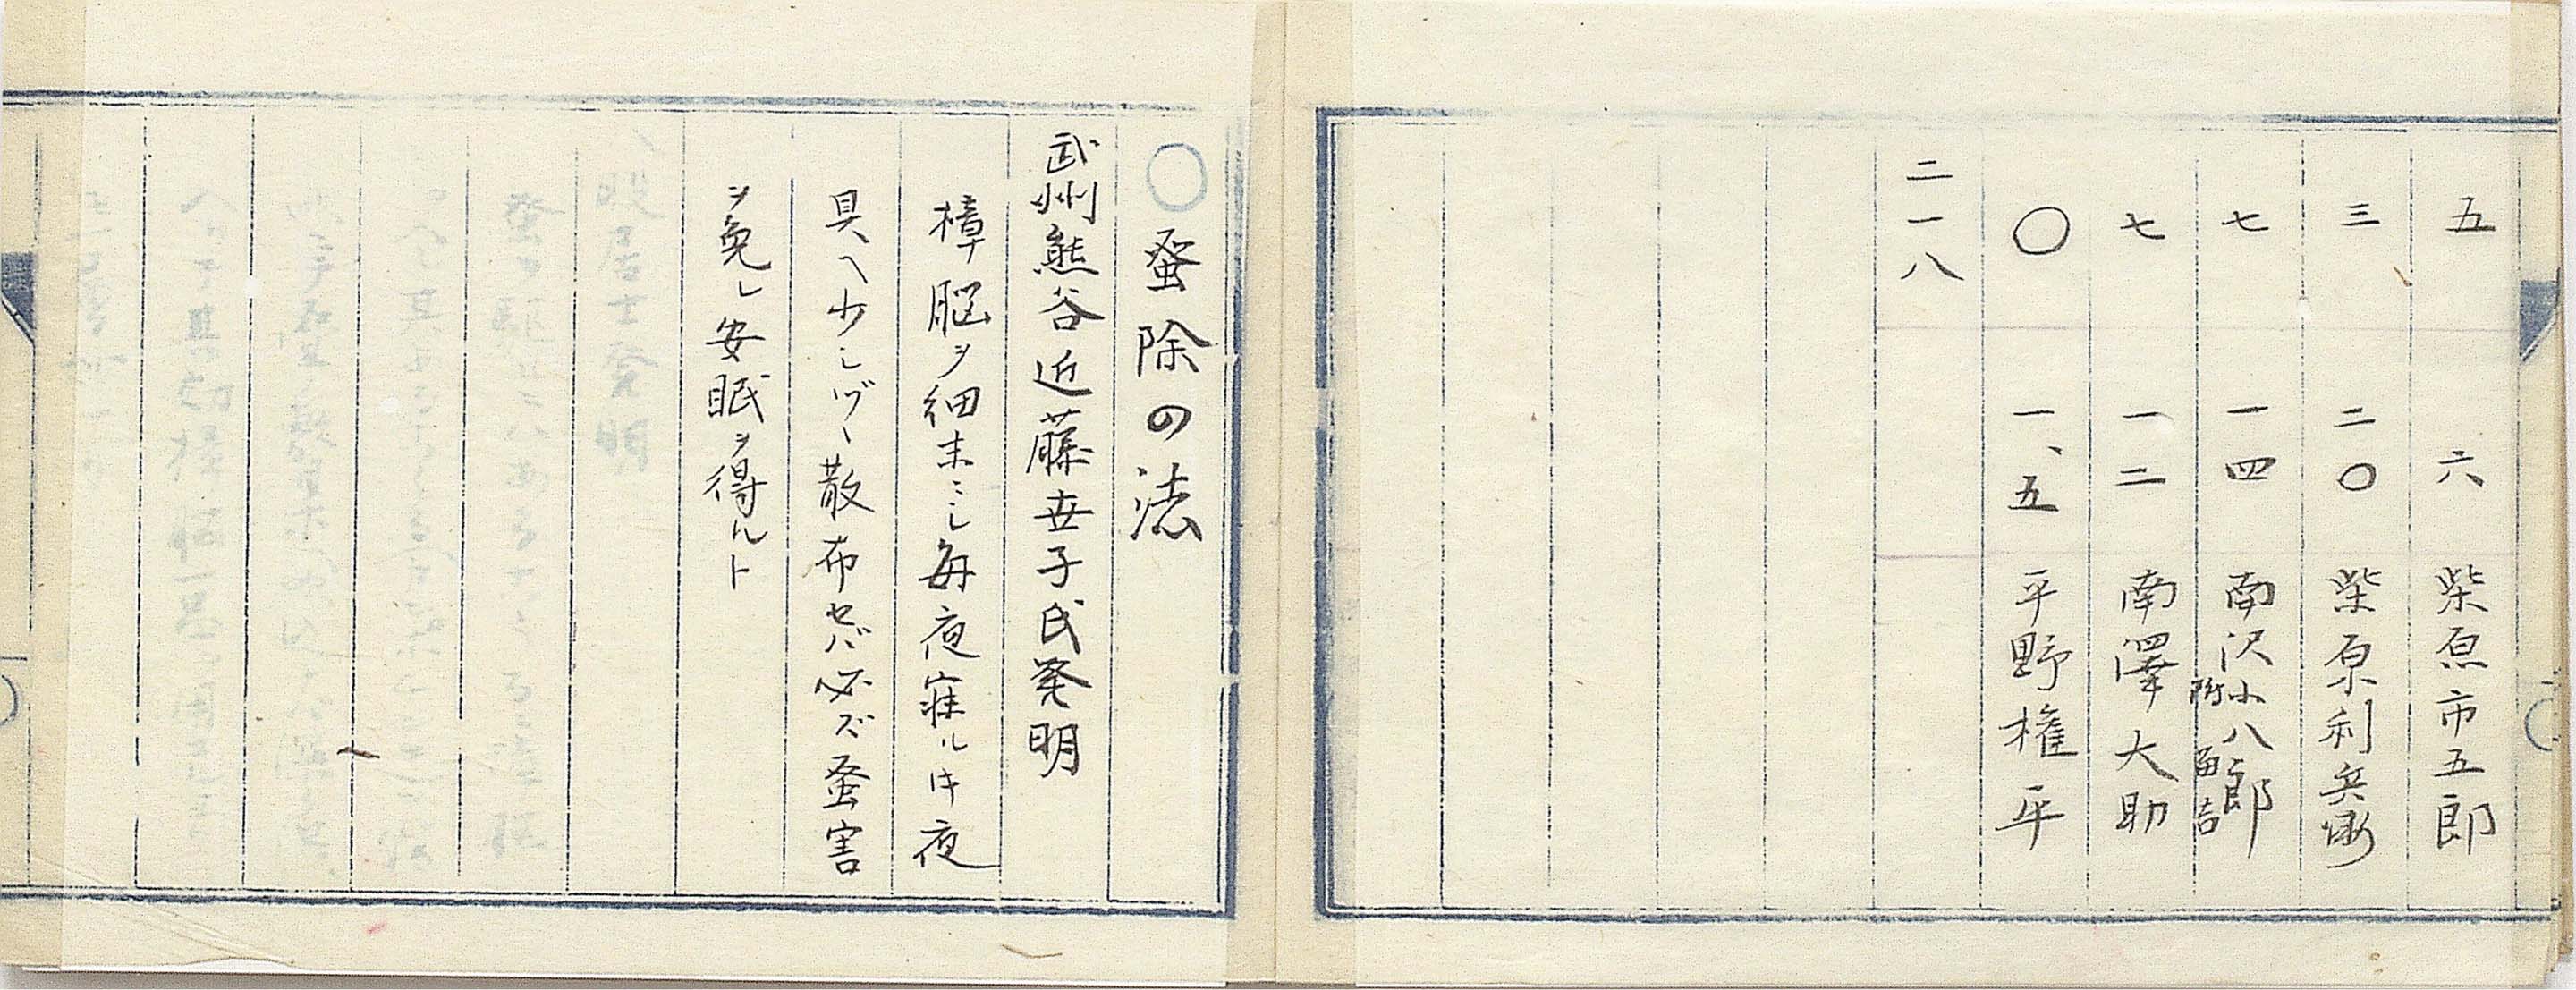 五 六 柴原市五郎
三 二〇 柴原利兵衛
七 一四 南沢小八郎
附 留吉
七 一二 南澤大助
〇 一、五 平野権平
二一八
〇 蚤除の法
武州熊谷近藤世子氏発明
樟脳ヲ細末ニし毎夜寐ル片夜
具へ少しヅヽ散布セバ必ズ蚤害
ヲ免レ安眠ヲ得ルト